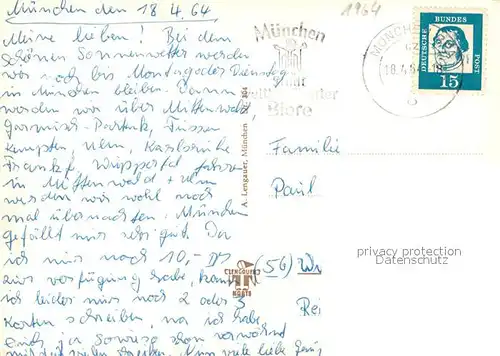 München den 18.4.64
Meine lieben! Bei dem
schönen Sonnenwetter werden
wir noch bis Montag oder Dienstag
in München bleiben. Dann
werden wir über Mittenwald,
Garmisch-Partenk, Füssen
Kempten Ulm, Karlsruhe
Frankf. Wuppertal fahren
in Mittenwald + Ulm
werden wir wohl noch
mal übernachten. München
gefällt mir sehr gut. Da
ich nur noch 10,- DM
zur verfügung habe, kann
ich leider nur noch 2 oder 3
Karten schreiben, na ich habe
euch ja sowieso schon verwöhnt
mit den vielen Nun viele liebe
A. Lengauer, München
LENGAUER
KARTE
1964
München
Stadt
Biere
MÜNCHEN
18.4.64
DEUTSCHE BUNDESPOST
15
Familie
Paul
(56) Wu
Rei
privacy protection
Datenschutz